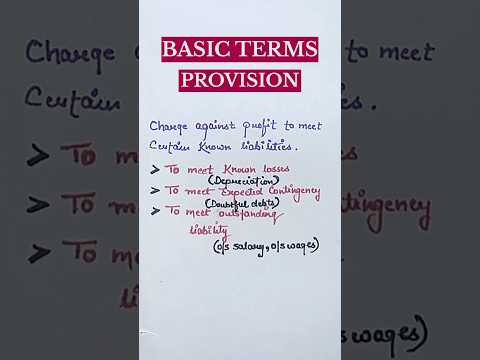 BASIC TERMS
PROVISION
Charge against profit to meet
Certain Known liabilities.
➤ To meet Known losses
(Depreciation)
➤ To meet Expected Contingency
(Doubtful debts)
➤ To meet outstanding
liability
(o/s salary, o/s wages)